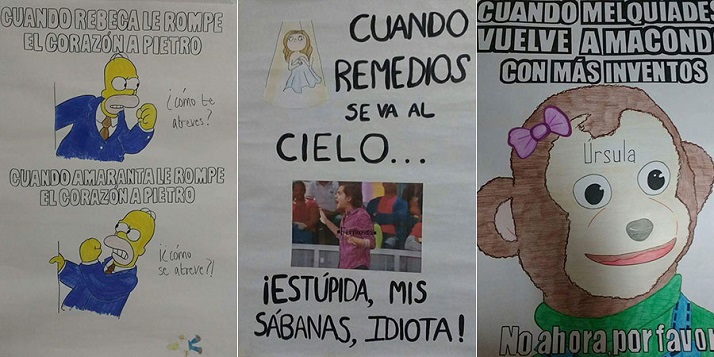 CUANDO REBECA LE ROMPE
EL CORAZÓN A PIETRO
¿cómo te
atreves?
CUANDO AMARANTA LE ROMPE
EL CORAZÓN A PIETRO
¡¿cómo
se atreve?!
CUANDO
REMEDIOS
SE VA AL
CIELO...
¡ESTÚPIDA, MIS
SÁBANAS, IDIOTA!
CUANDO MELQUIADES
VUELVE A MACOND
CON MÁS INVENTOS
Úrsula
No ahora por favor